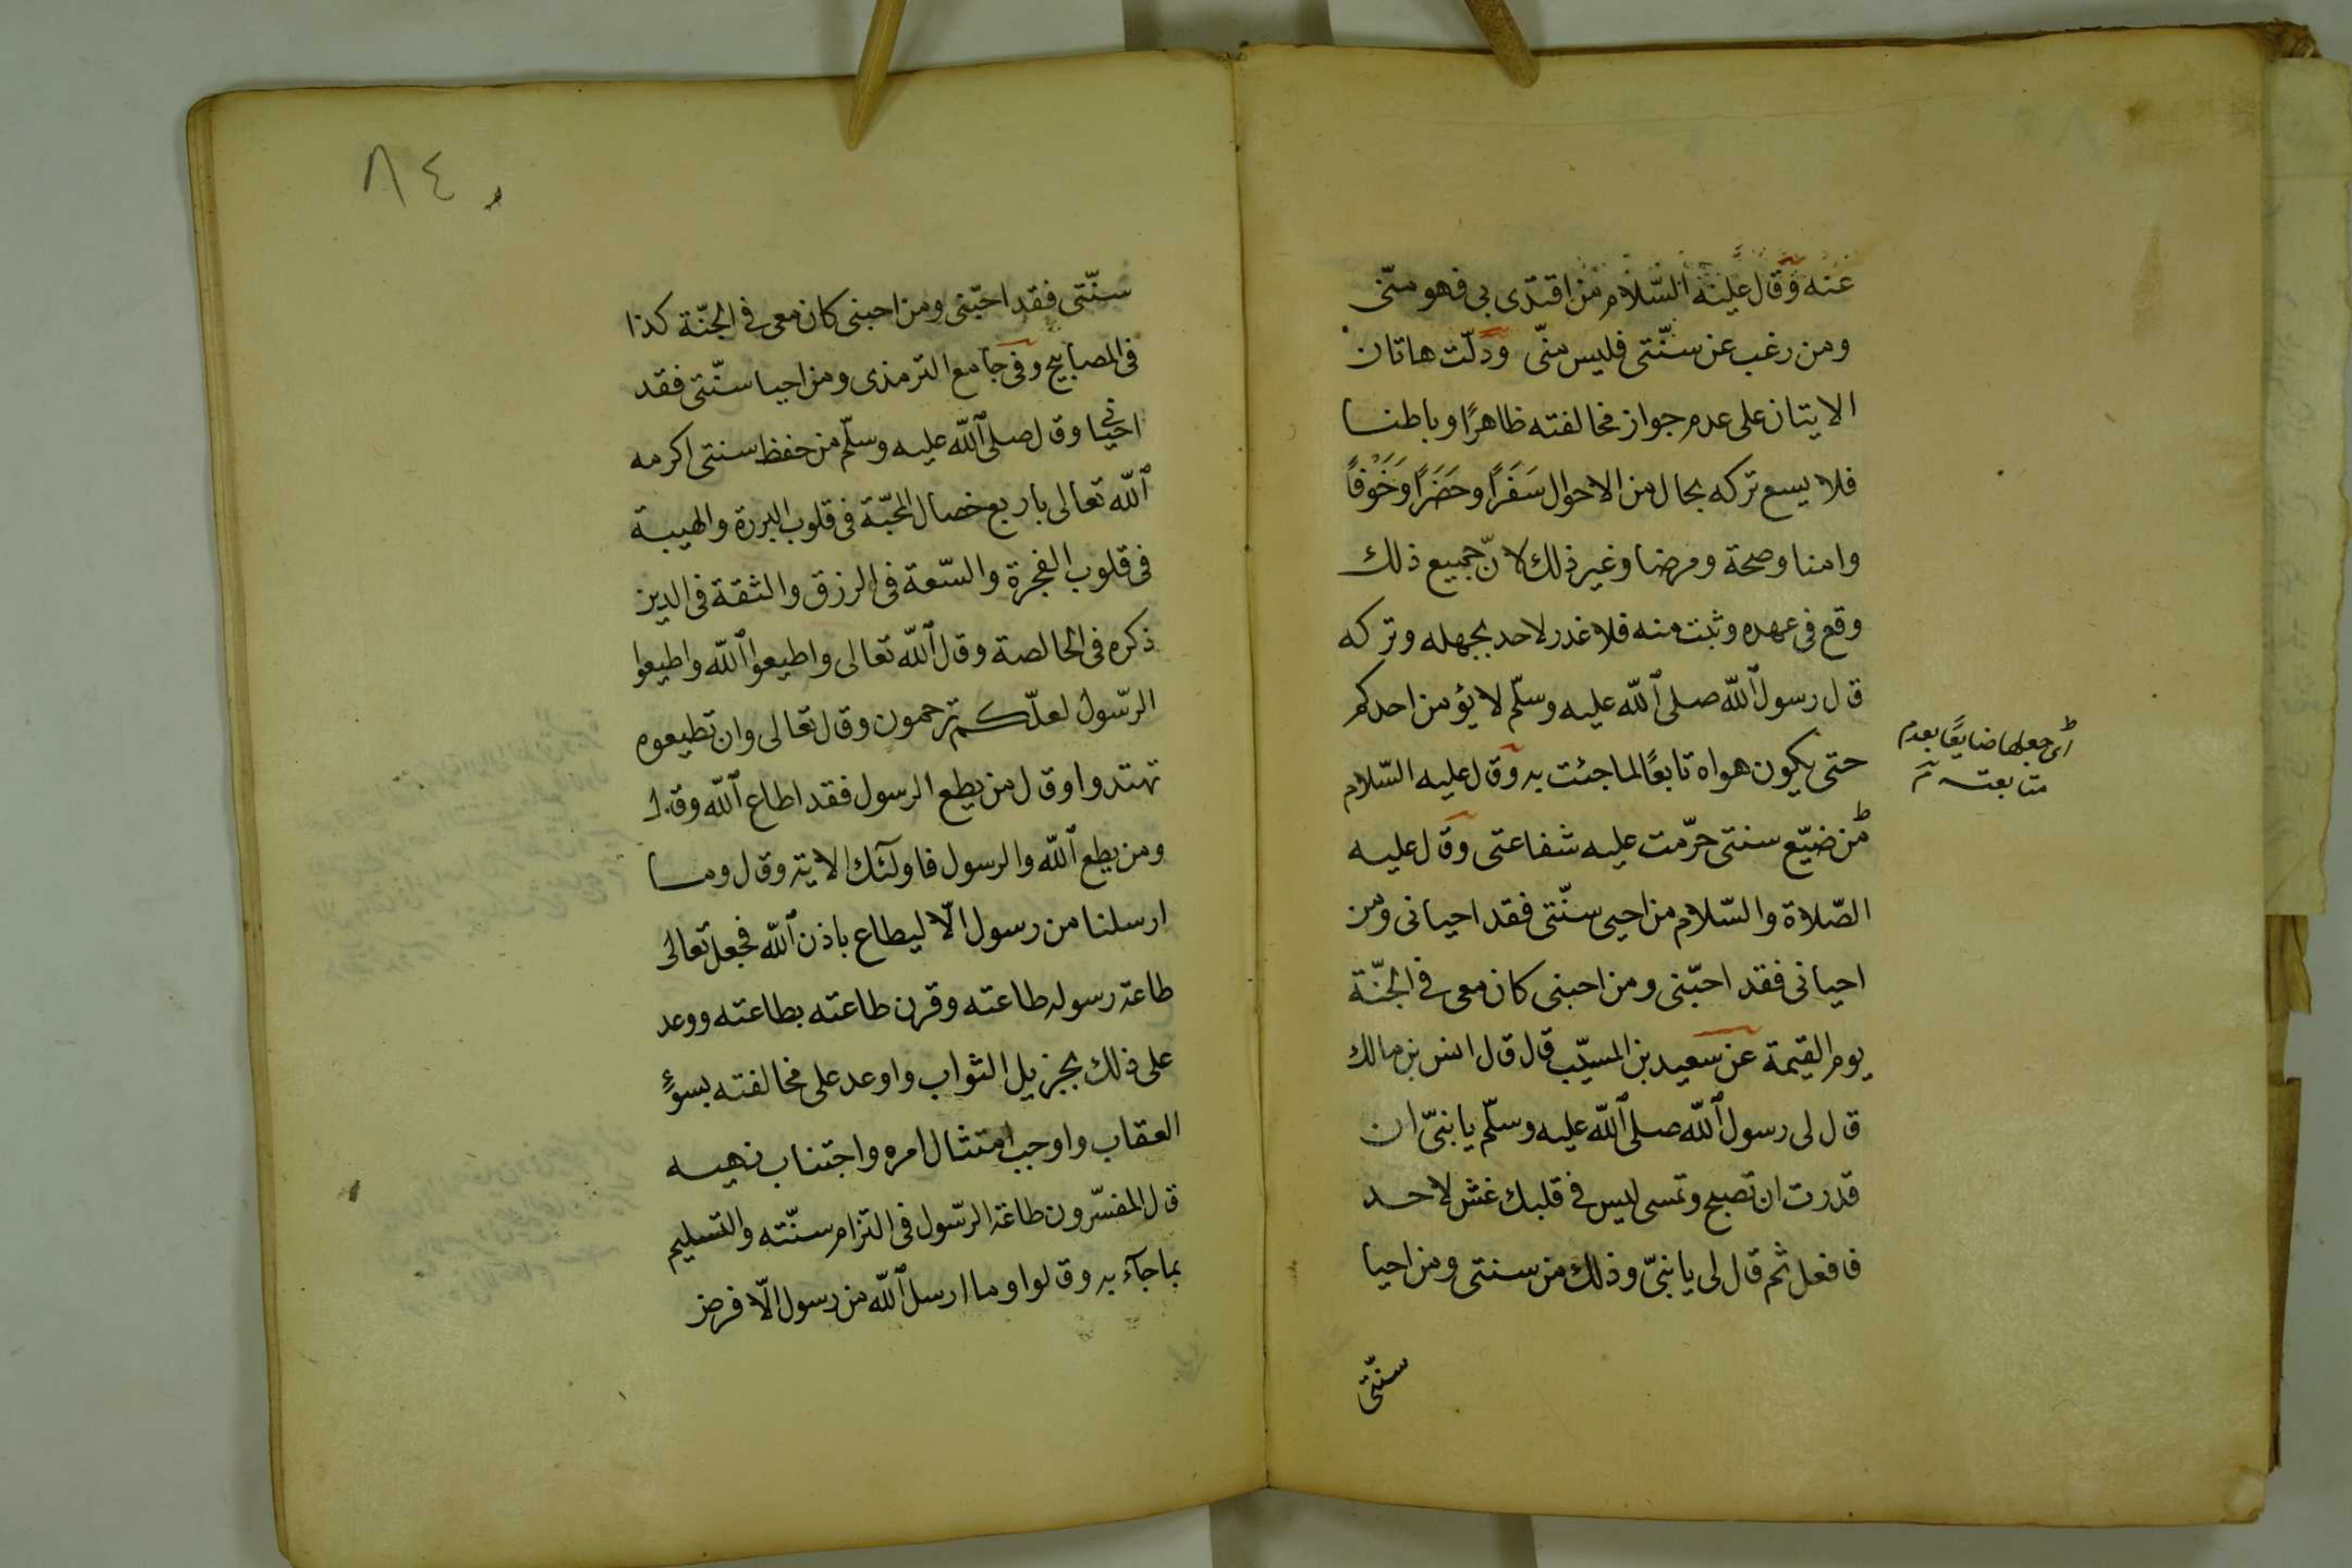 عنه وقال علينه السّلام من اقتدى بى فهو منّى
ومن رغب عن سنّتى فليس منّى ودلّت هاتان
الايتان على عدم جواز مخالفته ظاهرًا وباطنا
فلا يسع تركه بحال من الاحوال سَفَرًا وحَضَرًا وَخَوْفًا
وامنا وصحة ومرضا وغير ذلك لانّ جميع ذلك
وقع فى عهده وثبت منه فلا غدر لاحد بجهله وتركه
قال رسول الله صلى الله عليه وسلّم لا يؤمن احدكم
حتى يكون هواه تابعًا لما جئت به وقال عليه السّلام
من ضيّع سنتى حرّمت عليه شفاعتى وقال عليه
الصّلاة والسّلام من احيى سنّتى فقد احيانى ومن
احيانى فقد احبّنى ومن احبنى كان معى فى الجنّة
يوم القيمة عن سعيد بن المسيّب قال قال انس بن مالك
قال لى رسول الله صلى الله عليه وسلّم يا بنىّ ان
قدرت ان تصبح وتمسى ليس فى قلبك غش لاحد
فافعل ثم قال لى يا بنىّ وذلك من سنتى ومن احيا
سنّتى
اى جعلها ضايعًا بعدم
متابعته
٨٤
سنّتى فقد احبّنى ومن احبنى كان معى فى الجنّة كذا
فى المصابيح وفى جامع الترمذى ومن احيا سنّتى فقد
احيانى وقال صلى الله عليه وسلّم من حفظ سنتى اكرمه
الله تعالى باربع خصال المحبّة فى قلوب البررة والهيبة
فى قلوب الفجرة والسّعة فى الرزق والثقة فى الدين
ذكره فى الخالصة وقال الله تعالى واطيعوا الله واطيعوا
الرّسول لعلّكم ترحمون وقال تعالى وان تطيعوه
تهتدوا وقال من يطع الرسول فقد اطاع الله وقال
ومن يطع الله والرسول فاولئك الاية وقال وما
ارسلنا من رسول الّا ليطاع باذن الله فجعل تعالى
طاعة رسوله طاعته وقرن طاعته بطاعته ووعد
على ذلك بجزيل الثواب واوعد على مخالفته بسوء
العقاب واوجب امتثال امره واجتناب نهيه
قال المفسّرون طاعة الرّسول فى التزام سنّته والتسليم
بما جآء به وقالوا وما ارسل الله من رسول الّا فرض